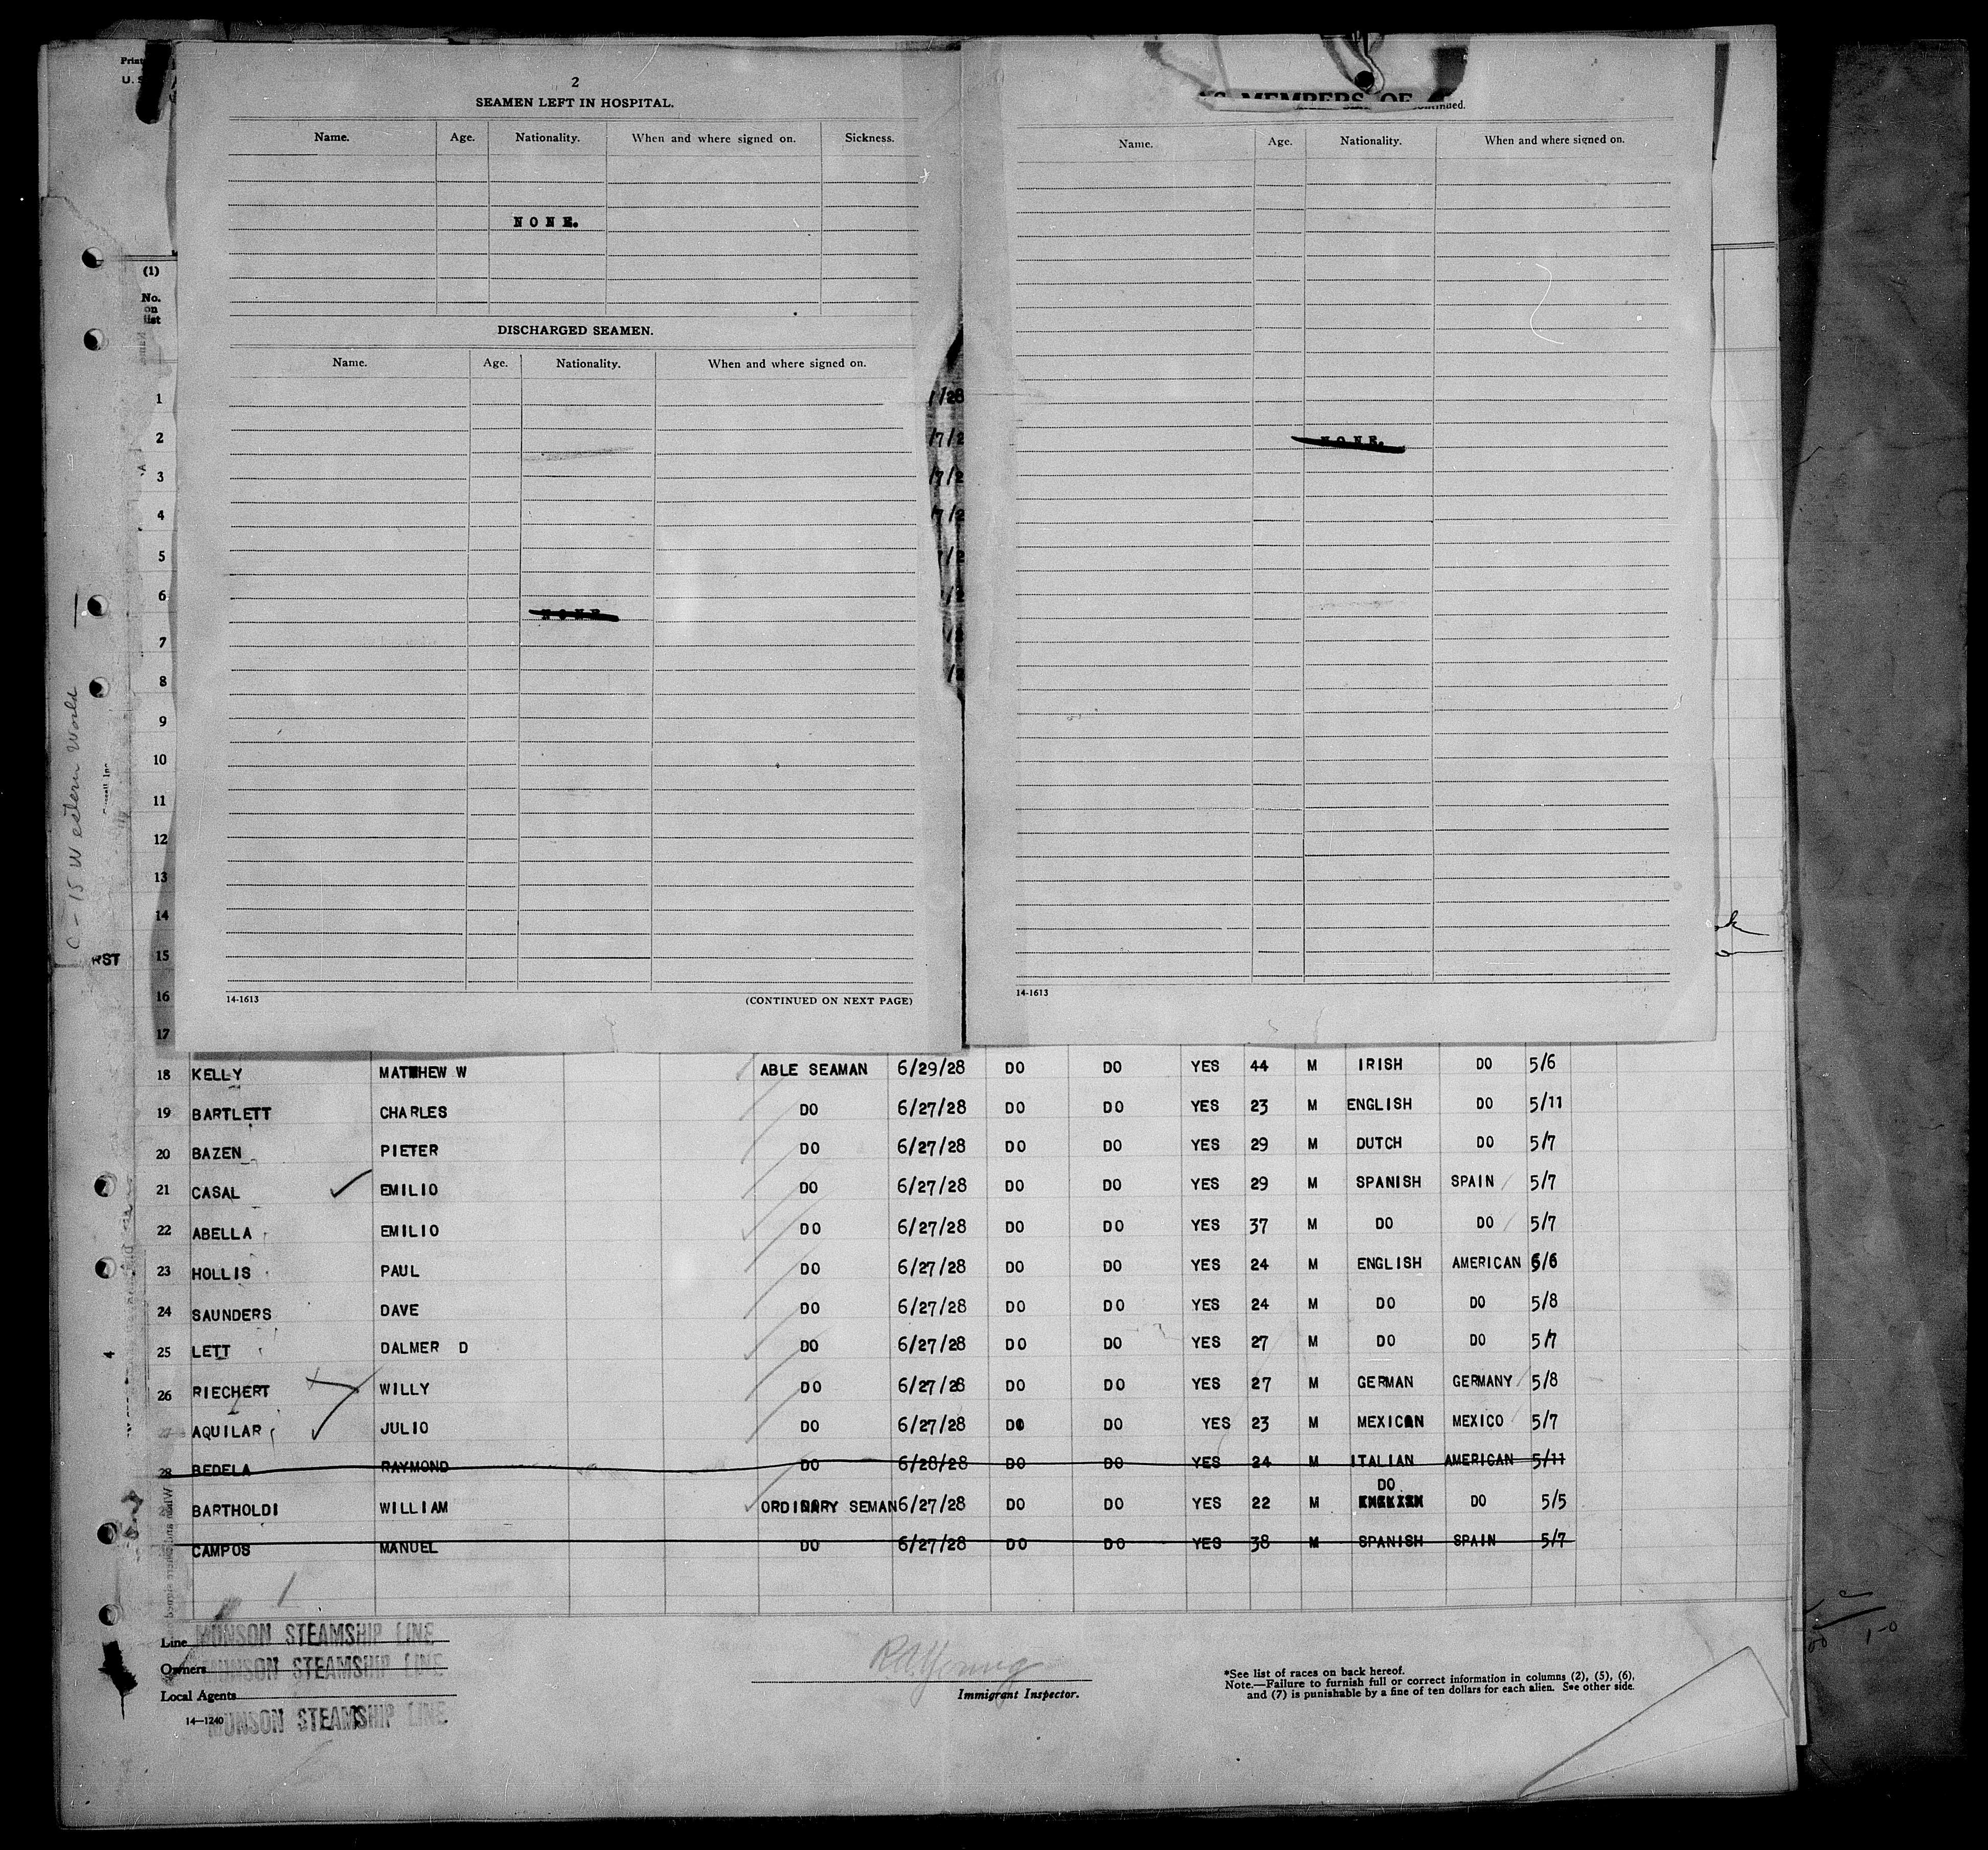 2
SEAMEN LEFT IN HOSPITAL.
Name. Age. Nationality. When and where signed on. Sickness.
NONE.
DISCHARGED SEAMEN.
Name. Age. Nationality. When and where signed on.
14-1613 (CONTINUED ON NEXT PAGE)
MEMBERS OF
Name. Age. Nationality. When and where signed on.
NONE.
14-1613
(1)
No.
on
list
1
2
3
4
5
6
7
8
9
10
11
12
13
14
15
16
17
C-15 Western World
18 KELLY MATTHEW W ABLE SEAMAN 6/29/28 DO DO YES 44 M IRISH DO 5/6
19 BARTLETT CHARLES DO 6/27/28 DO DO YES 23 M ENGLISH DO 5/11
20 BAZEN PIETER DO 6/27/28 DO DO YES 29 M DUTCH DO 5/7
21 CASAL EMILIO DO 6/27/28 DO DO YES 29 M SPANISH SPAIN 5/7
22 ABELLA EMILIO DO 6/27/28 DO DO YES 37 M DO DO 5/7
23 HOLLIS PAUL DO 6/27/28 DO DO YES 24 M ENGLISH AMERICAN 6/6
24 SAUNDERS DAVE DO 6/27/28 DO DO YES 24 M DO DO 5/8
25 LETT DALMER D DO 6/27/28 DO DO YES 27 M DO DO 5/7
26 RIECHERT WILLY DO 6/27/28 DO DO YES 27 M GERMAN GERMANY 5/8
27 AQUILAR JULIO DO 6/27/28 DO DO YES 23 M MEXICAN MEXICO 5/7
28 BEDELA RAYMOND DO 6/28/28 DO DO YES 24 M ITALIAN AMERICAN 5/11
BARTHOLDI WILLIAM ORDINARY SEMAN 6/27/28 DO DO YES 22 M DO DO 5/5
CAMPOS MANUEL DO 6/27/28 DO DO YES 38 M SPANISH SPAIN 5/7
Line MUNSON STEAMSHIP LINE
Owners MUNSON STEAMSHIP LINE
Local Agents
MUNSON STEAMSHIP LINE
14—1240
Immigrant Inspector.
*See list of races on back hereof.
Note.—Failure to furnish full or correct information in columns (2), (5), (6),
and (7) is punishable by a fine of ten dollars for each alien. See other side.